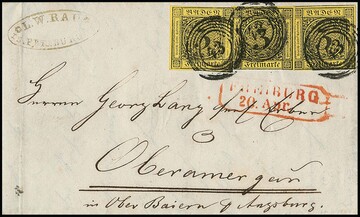 C.L.W. BAU
FREIBURG
BADEN BADEN BADEN
3 3 3
Freimarke Freimarke Freimarke
FREIBURG
20. Apr.
Herrn Georg Lang sel. Erben
3
Oberamergau
in Ober Baiern p Augsburg.